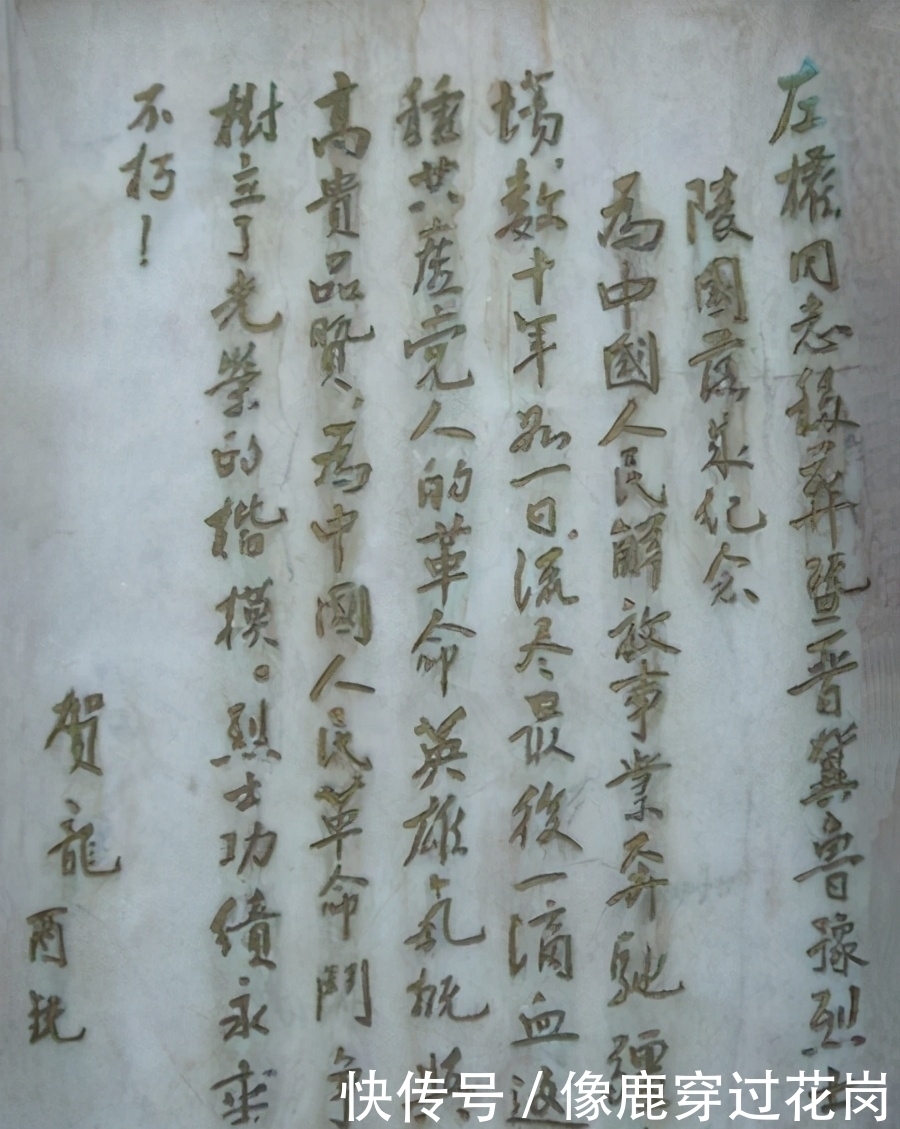 左權同志移葬暨晋冀魯豫烈士
陵園落成纪念
為中國人民解放事業奔驰疆
場，数十年如一日，流尽最後一滴血，这
種共産党人的革命英雄氣概
高貴品質、為中國人民革命鬥争
樹立了光榮的楷模。烈士功績永垂
不朽！
賀龍
快传号/像鹿穿过花岗